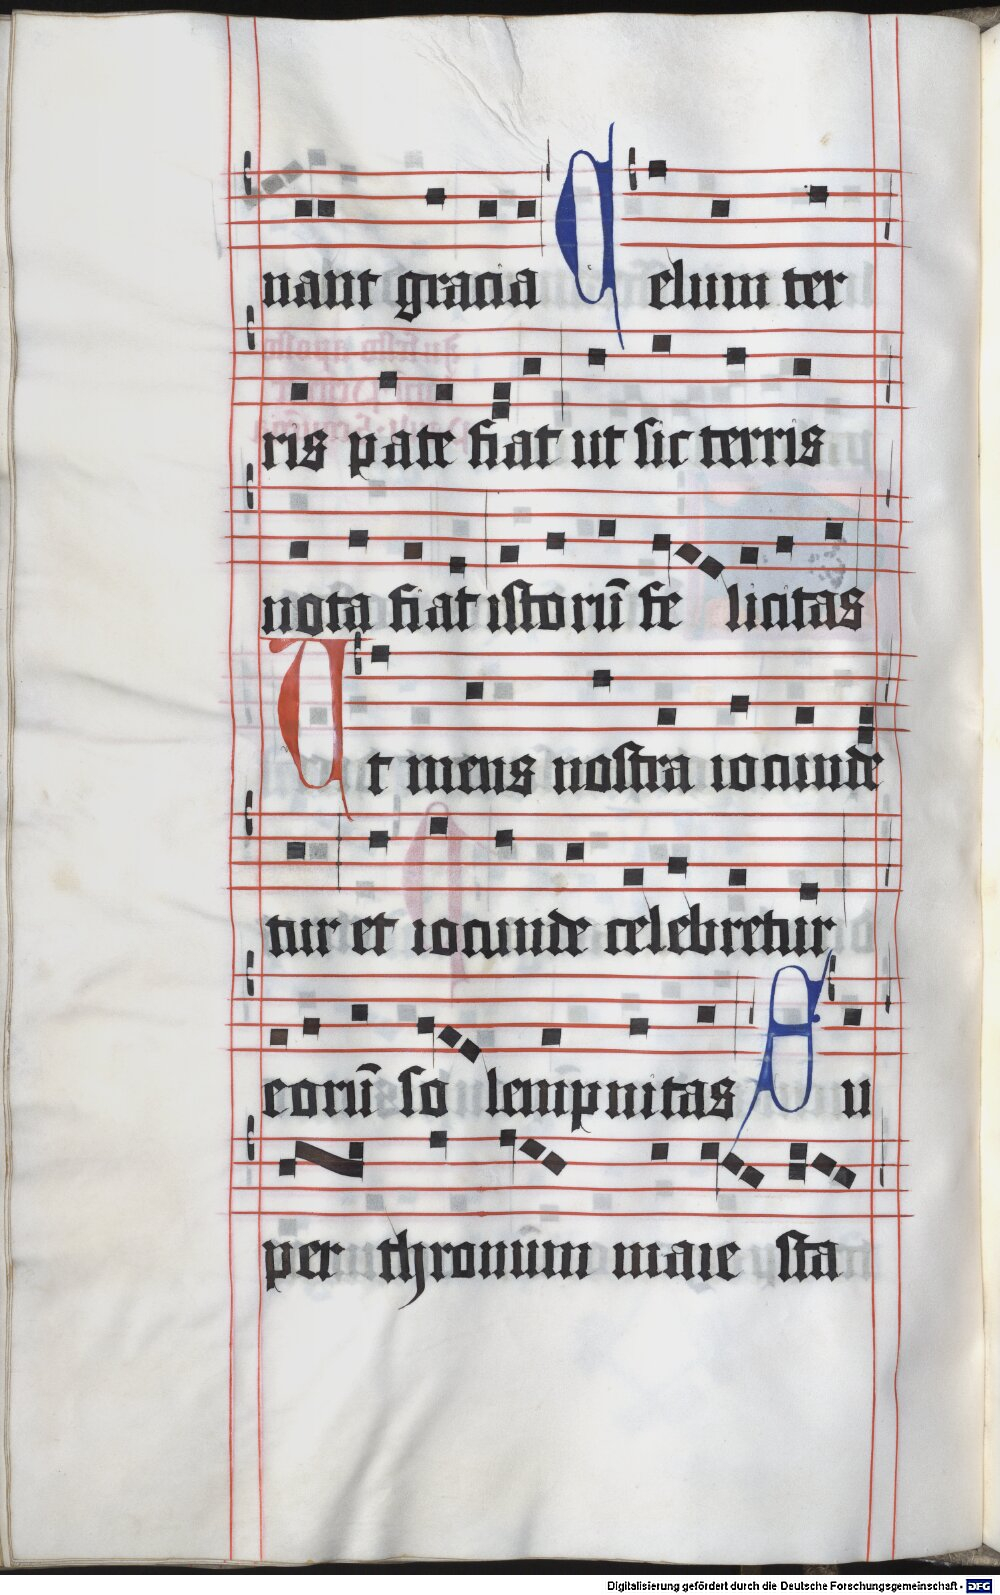 nant gracia Celum ter
ris pate fiat ut sic terris
nota fiat istorū fe licitas
Ut mens nostra iocunde
tur et iocunde celebretur
eorū so lempnitas Su
per thronum maie sta
Digitalisierung gefördert durch die Deutsche Forschungsgemeinschaft - DFG